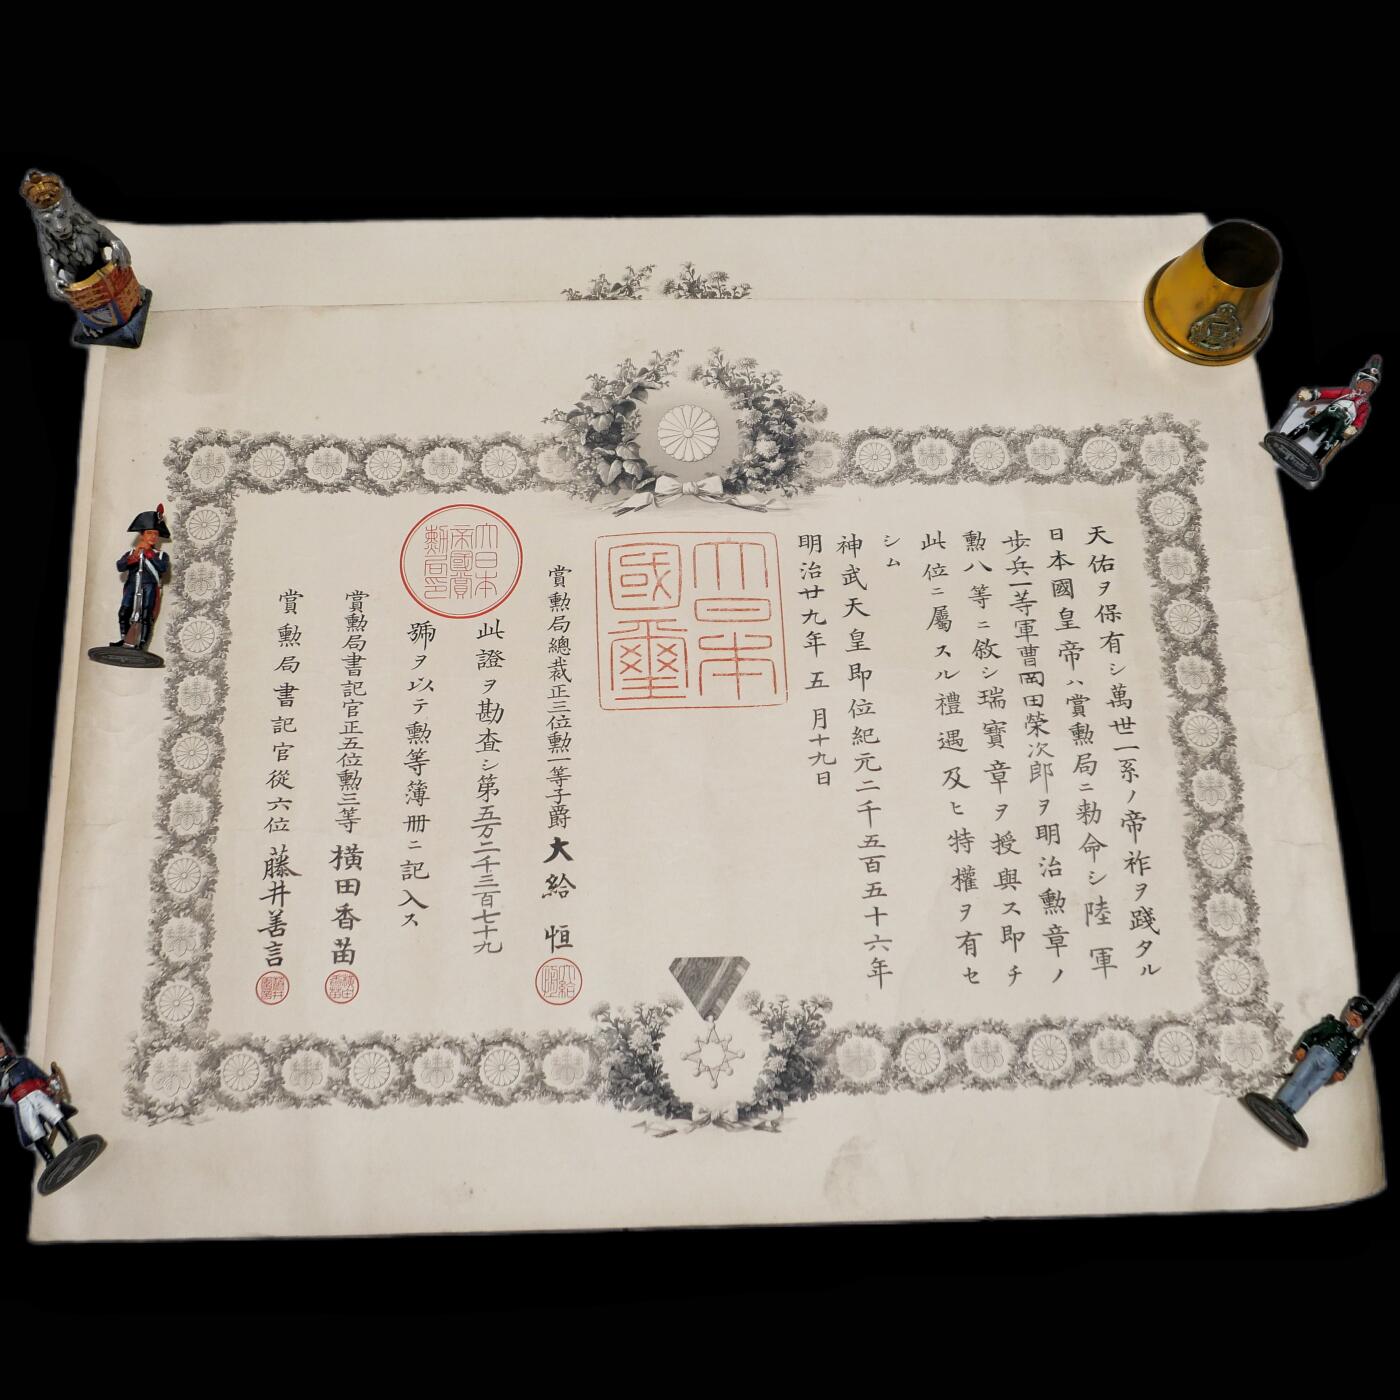 天佑ヲ保有シ萬世一系ノ帝祚ヲ踐タル
日本國皇帝ハ賞勲局ニ勅命シ陸軍
歩兵一等軍曹岡田榮次郎ヲ明治勲章ノ
勲八等ニ敘シ瑞寶章ヲ授與ス即チ
此位ニ屬スル禮遇及ヒ特權ヲ有セ
シム
神武天皇即位紀元二千五百五十六年
明治廿九年五月十九日
大日本
國璽
賞勲局總裁正三位勲一等子爵大給恒
此證ヲ勘査シ第五万二千三百七十九
號ヲ以テ勲等簿冊ニ記入ス
大日本
帝國賞
勲局印
賞勲局書記官正五位勲三等横田香苗
賞勲局書記官從六位藤井善言